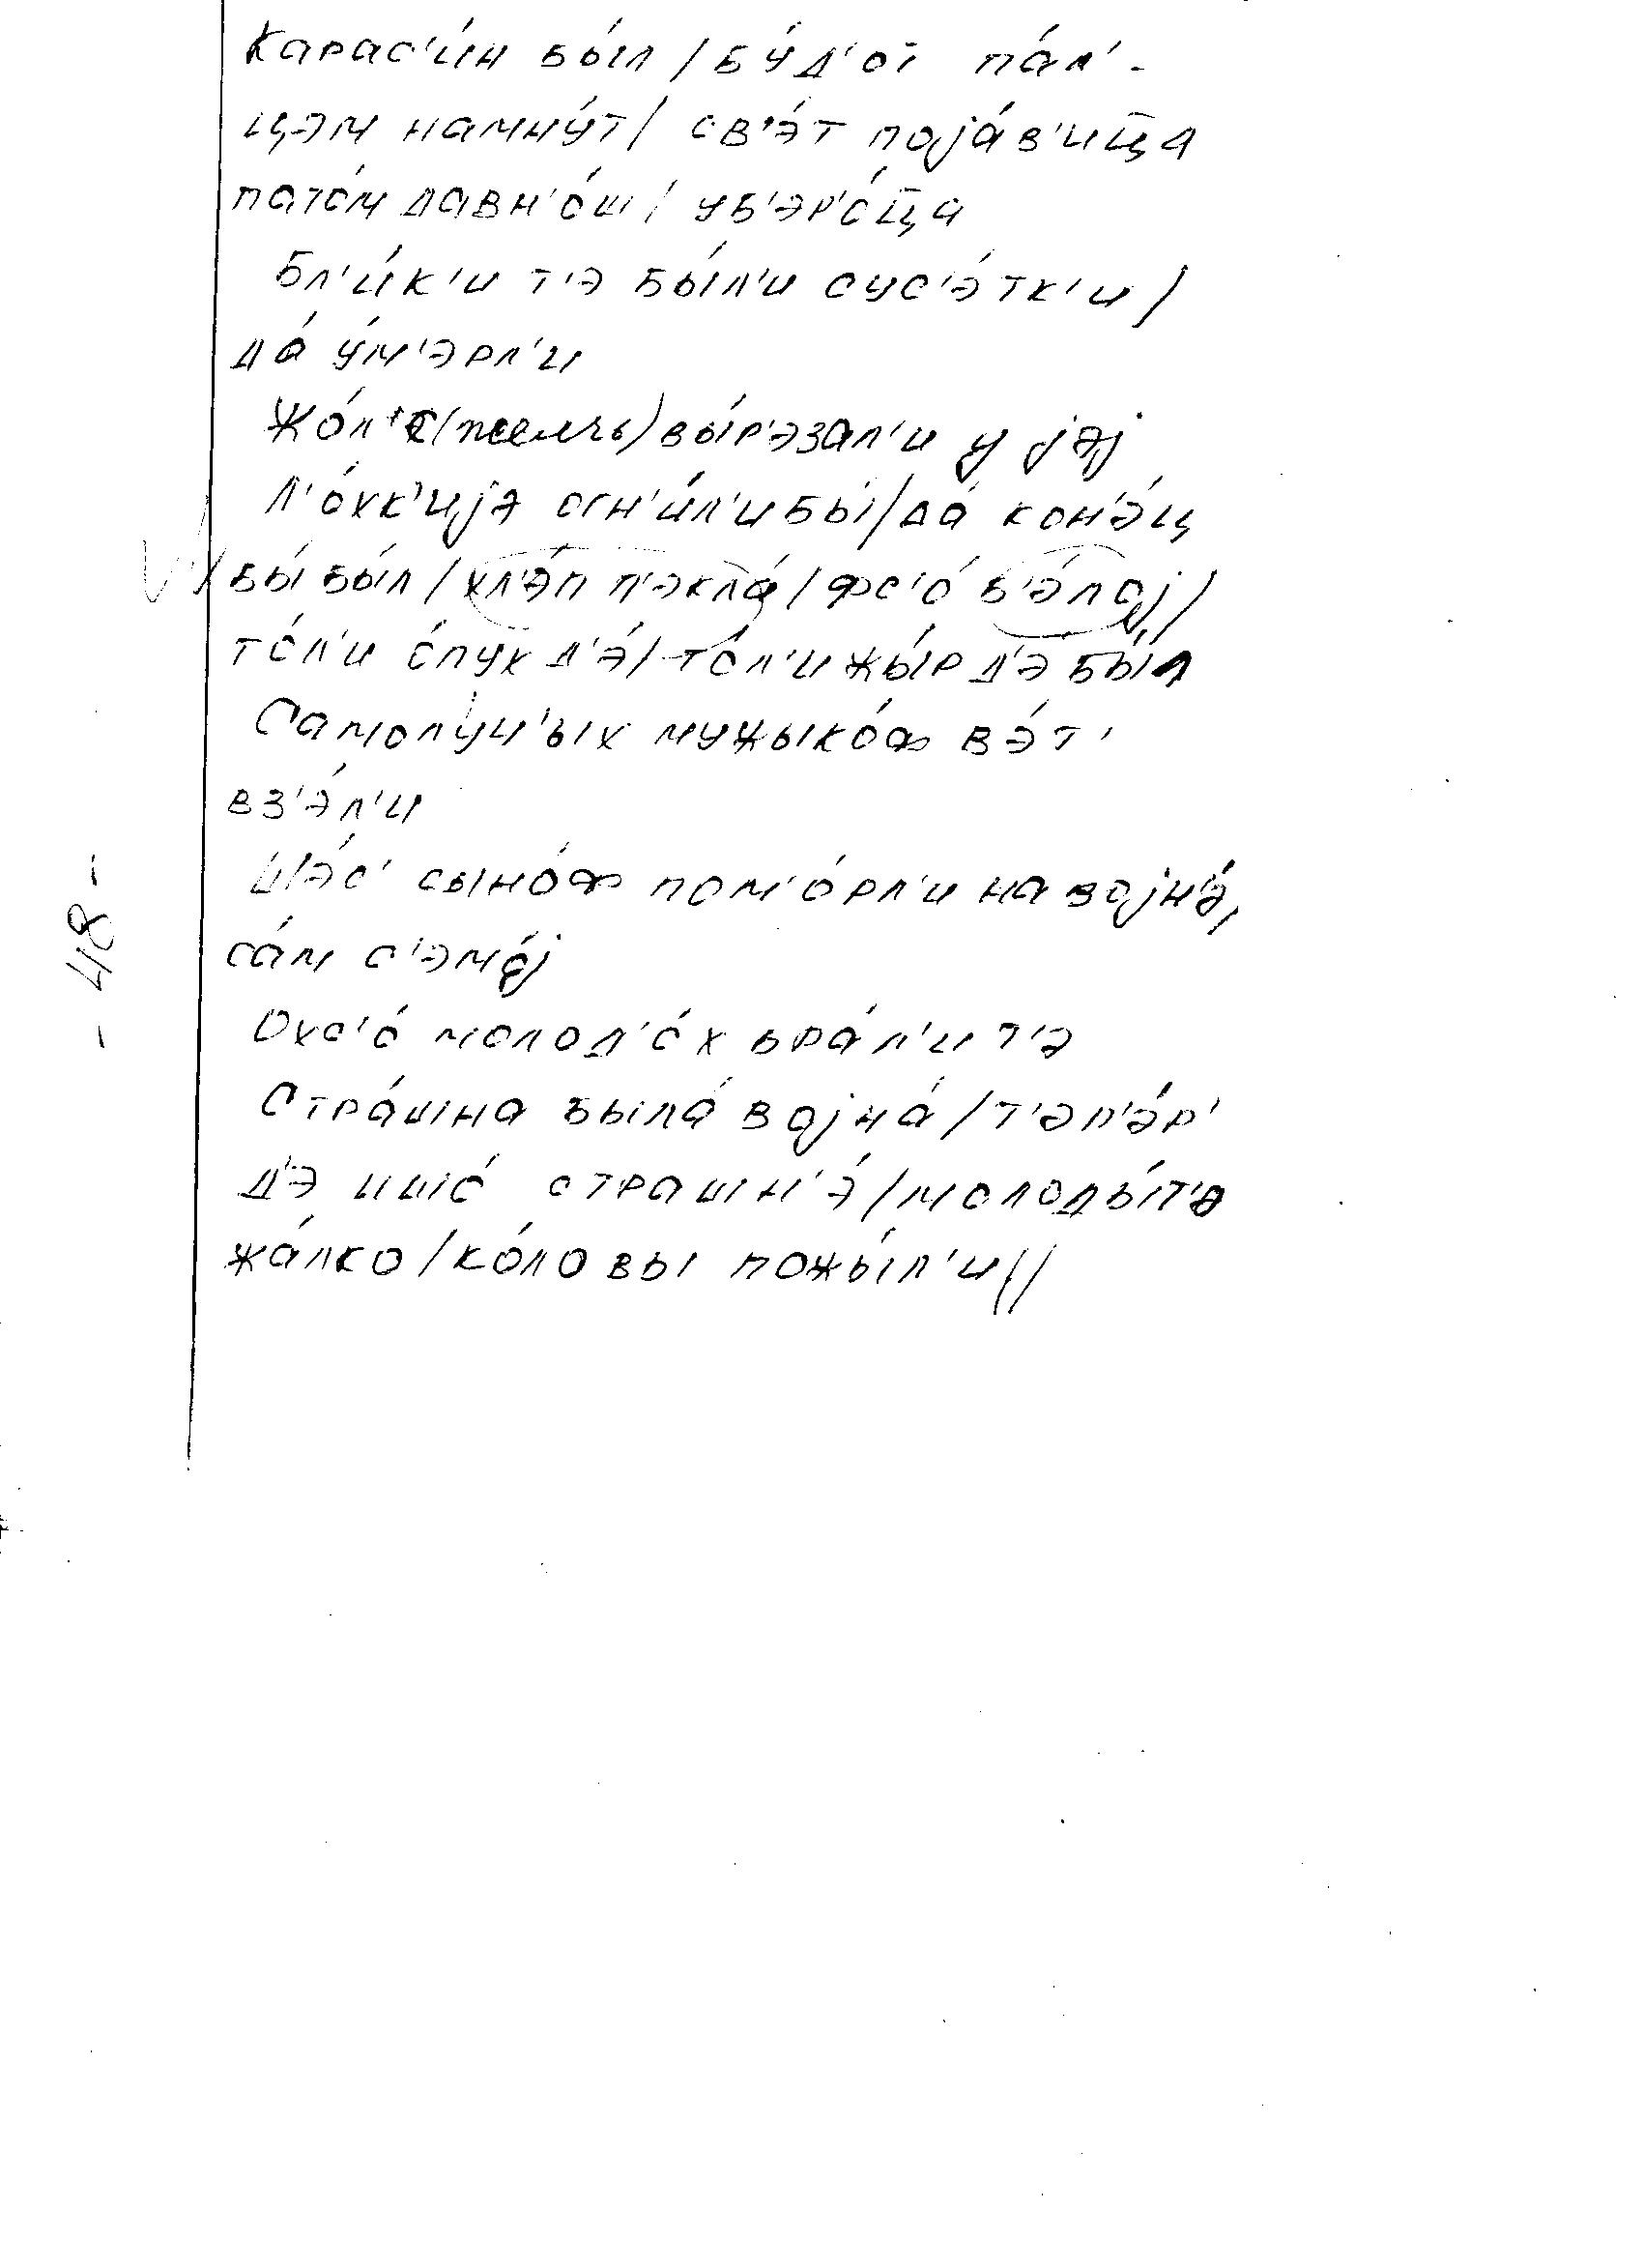 Карас'и́н бы́л / бу́д'от па́л'-
цэм намну́т / св'э́т поја́в'ица
пато́м давн'о́ш / уб'эр'о́ца
Бл'и́к'и т'э бы́л'и сус'э́тк'и /
да́ у́м'эрл'и
Жо́л'ч (желчь) вы́р'эзал'и у јэј
Л'о́хк'ијэ огн'и́л'и бы́ / да́ кон'э́ц
бы́ бы́л / хл'э́п п'экла́ / фс'о́ б'э́лој /
то́л'и о́пух д'э́ / то́л'и жы́р д'э бы́л
Самолу́ч'ых мужыко́ф вэ́т'
вз'э́л'и
Шэ́с' сыно́ф пом'о́рл'и на војн'э́,
са́м с'эмо́ј
Охс'о́ молод'о́х бра́л'и т'э
Стра́шна была́ војна́ / т'эп'э́р'
д'э ишо́ страшн'э́ / молоды́т'э
жа́лко / ко́ло вы пожы́л'и //
- 48 -